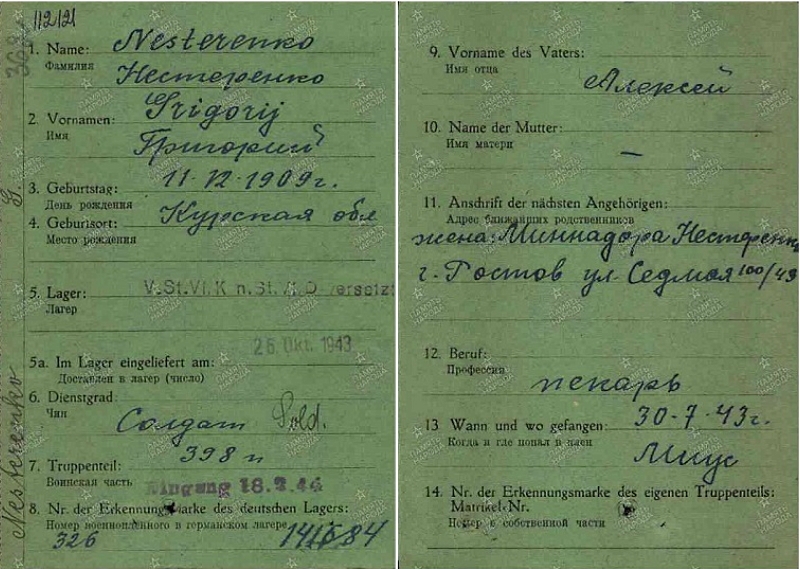 112121
1. Name: Nesterenko
Фамилия
Нестеренко
2. Vornamen: Grigorij
Имя
Григорий
3. Geburtstag: 11·VI·1909г.
День рождения
4. Geburtsort: Курская обл
Место рождения
5. Lager: V.St.VI.K n.St. versetzt
Лагерь
26. Okt. 1943
5a. Im Lager eingeliefert am:
Доставлен в лагерь (число)
6. Dienstgrad:
Чин
Солдат Sold.
398 п
7. Truppenteil:
Воинская часть
Eingang 18.2.44
8. Nr. der Erkennungsmarke des deutschen Lagers:
Номер военнопленного в германском лагере
326
Nesterenko G.
9. Vorname des Vaters:
Имя отца
Алексей
10. Name der Mutter:
Имя матери
—
11. Anschrift der nächsten Angehörigen:
Адрес ближайших родственников
жена: Миннадора Нестеренко
г. Ростов ул. Седмая 100/49
12. Beruf:
Профессия
пекарь
13 Wann und wo gefangen: 30-7-43г.
Когда и где попал в плен
Миус
14. Nr. der Erkennungsmarke des eigenen Truppenteils:
Matrikel-Nr.
Номер в собственной части
ПАМЯТЬ НАРОДА